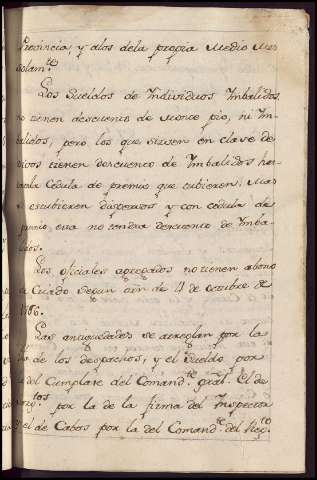 Provincia, y alos dela propia Medio Mes
solam.te
Los Sueldos de Individuos Imbalidos
no tienen descuento de Monte pio, ni Im-
balidos, pero los que sirven en clase de
vivos tienen descuento de Imbalidos
la Cedula de premio que tubieren. Mas
si estubieren dispersos y con cedula de
premio, esta no tendra descuento de Imba-
lidos.
Los oficiales agregados no tienen abono
de Criado segun orn de 4 de octubre de
1786.
Las antiguedades se arreglan por la
de los despachos, y el Sueldo por
la del Cumplase del Comand.te gral. El de
Sarg.tos por la de la firma del Inspector
y el de Cabos por la del Comand.te del Reg.to